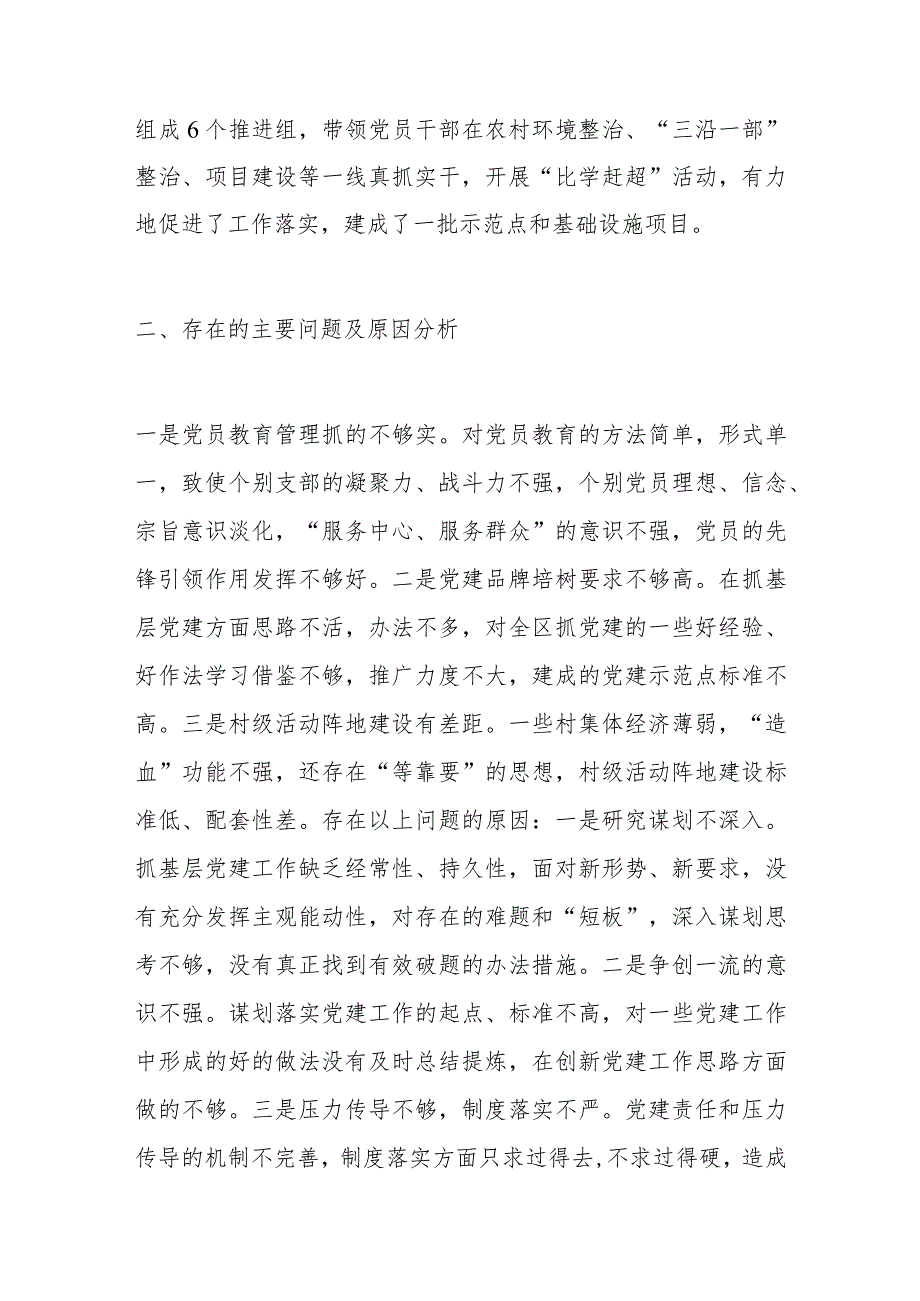 组成 6 个推进组，带领党员干部在农村环境整治、“三沿一部”
整治、项目建设等一线真抓实干，开展“比学赶超”活动，有力
地促进了工作落实，建成了一批示范点和基础设施项目。
二、存在的主要问题及原因分析
一是党员教育管理抓的不够实。对党员教育的方法简单，形式单
一，致使个别支部的凝聚力、战斗力不强，个别党员理想、信念、
宗旨意识淡化，“服务中心、服务群众”的意识不强，党员的先
锋引领作用发挥不够好。二是党建品牌培树要求不够高。在抓基
层党建方面思路不活，办法不多，对全区抓党建的一些好经验、
好作法学习借鉴不够，推广力度不大，建成的党建示范点标准不
高。三是村级活动阵地建设有差距。一些村集体经济薄弱，“造
血”功能不强，还存在“等靠要”的思想，村级活动阵地建设标
准低、配套性差。存在以上问题的原因：一是研究谋划不深入。
抓基层党建工作缺乏经常性、持久性，面对新形势、新要求，没
有充分发挥主观能动性，对存在的难题和“短板”，深入谋划思
考不够，没有真正找到有效破题的办法措施。二是争创一流的意
识不强。谋划落实党建工作的起点、标准不高，对一些党建工作
中形成的好的做法没有及时总结提炼，在创新党建工作思路方面
做的不够。三是压力传导不够，制度落实不严。党建责任和压力
传导的机制不完善，制度落实方面只求过得去,不求过得硬，造成